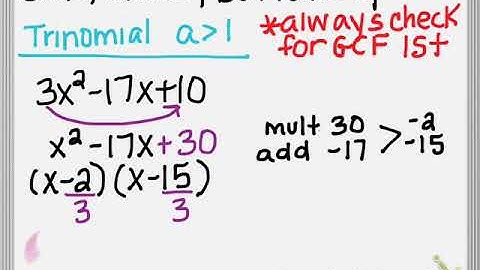 Trinomial a>1
*always check
for GCF 1st
3x²-17x+10
x²-17x+30
(x-2)(x-15)
3 3
mult 30 > -2
add -17 -15